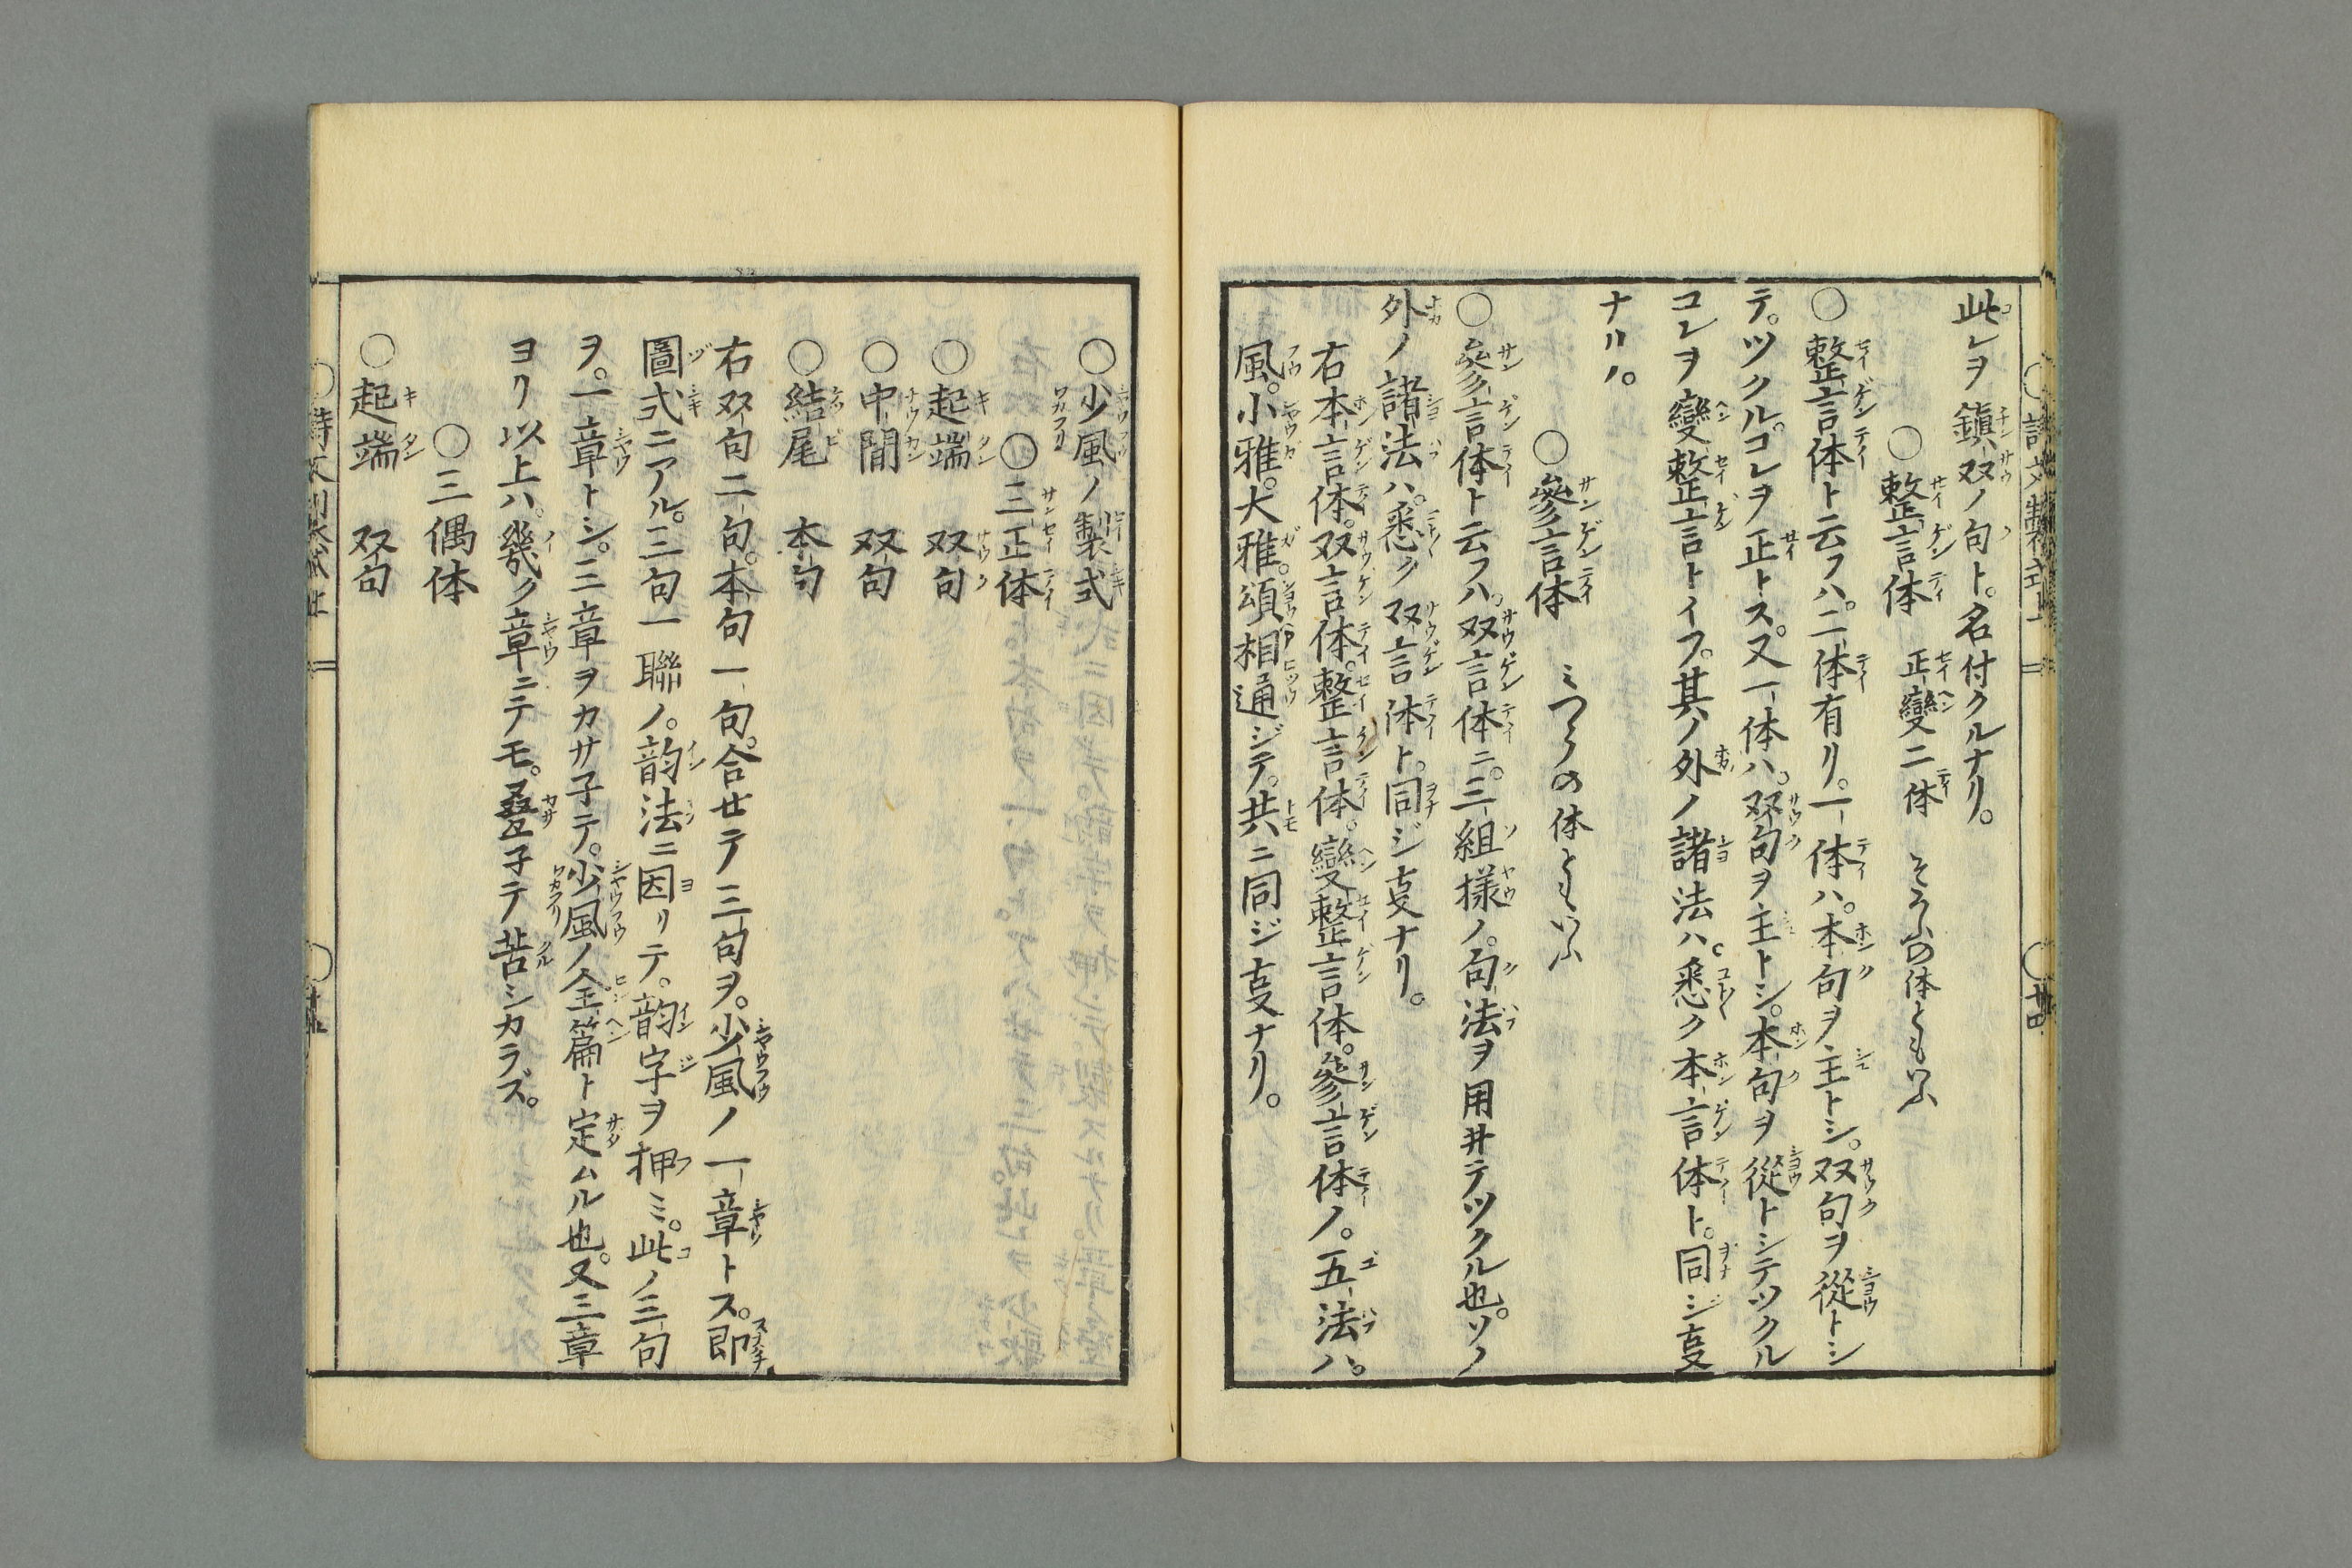 此レヲ鎮双ノ句ト。名付クルナリ。
○整言体 正變二体 そろふの体ともいふ
○整言体ト云フハ。二体有リ。一体ハ。本句ヲ主トシ。双句ヲ從トシ
テ。ツクル。コレヲ正トス。又一体ハ。双句ヲ主トシ。本句ヲ從トシテツクル
コレヲ變整言トイフ。其ノ外ノ諸法ハ。悉ク本言体ト。同ジ𫝆
ナリ。
○參言体 ミつうの体ともいふ
○參言体ト云フハ。双言体ニ。三組様ノ。句法ヲ用井テツクル也。ソノ
外ノ諸法ハ。悉ク双言体ト。同ジ𫝆ナリ。
右本言体。双言体。整言体。變整言体。參言体ノ。五法ハ。
風。小雅。大雅。頌。相通ジテ。共ニ同ジ𫝆ナリ。
○少風ノ製式
○三正体
○起端 双句
○中間 双句
○結尾 本句
右双句二句。本句一句。合せテ三句ヲ。少風ノ一章トス。即
圖式ニアル。三句一聯ノ。韵法ニ因リテ。韵字ヲ押ミ。此ノ三句
ヲ。一章トシ。三章ヲカサ子テ。少風ノ全篇ト定ムル也。又三章
ヨリ以上ハ。幾ク章ニテモ。疊子テ苦シカラズ。
○三偶体
○起端 双句